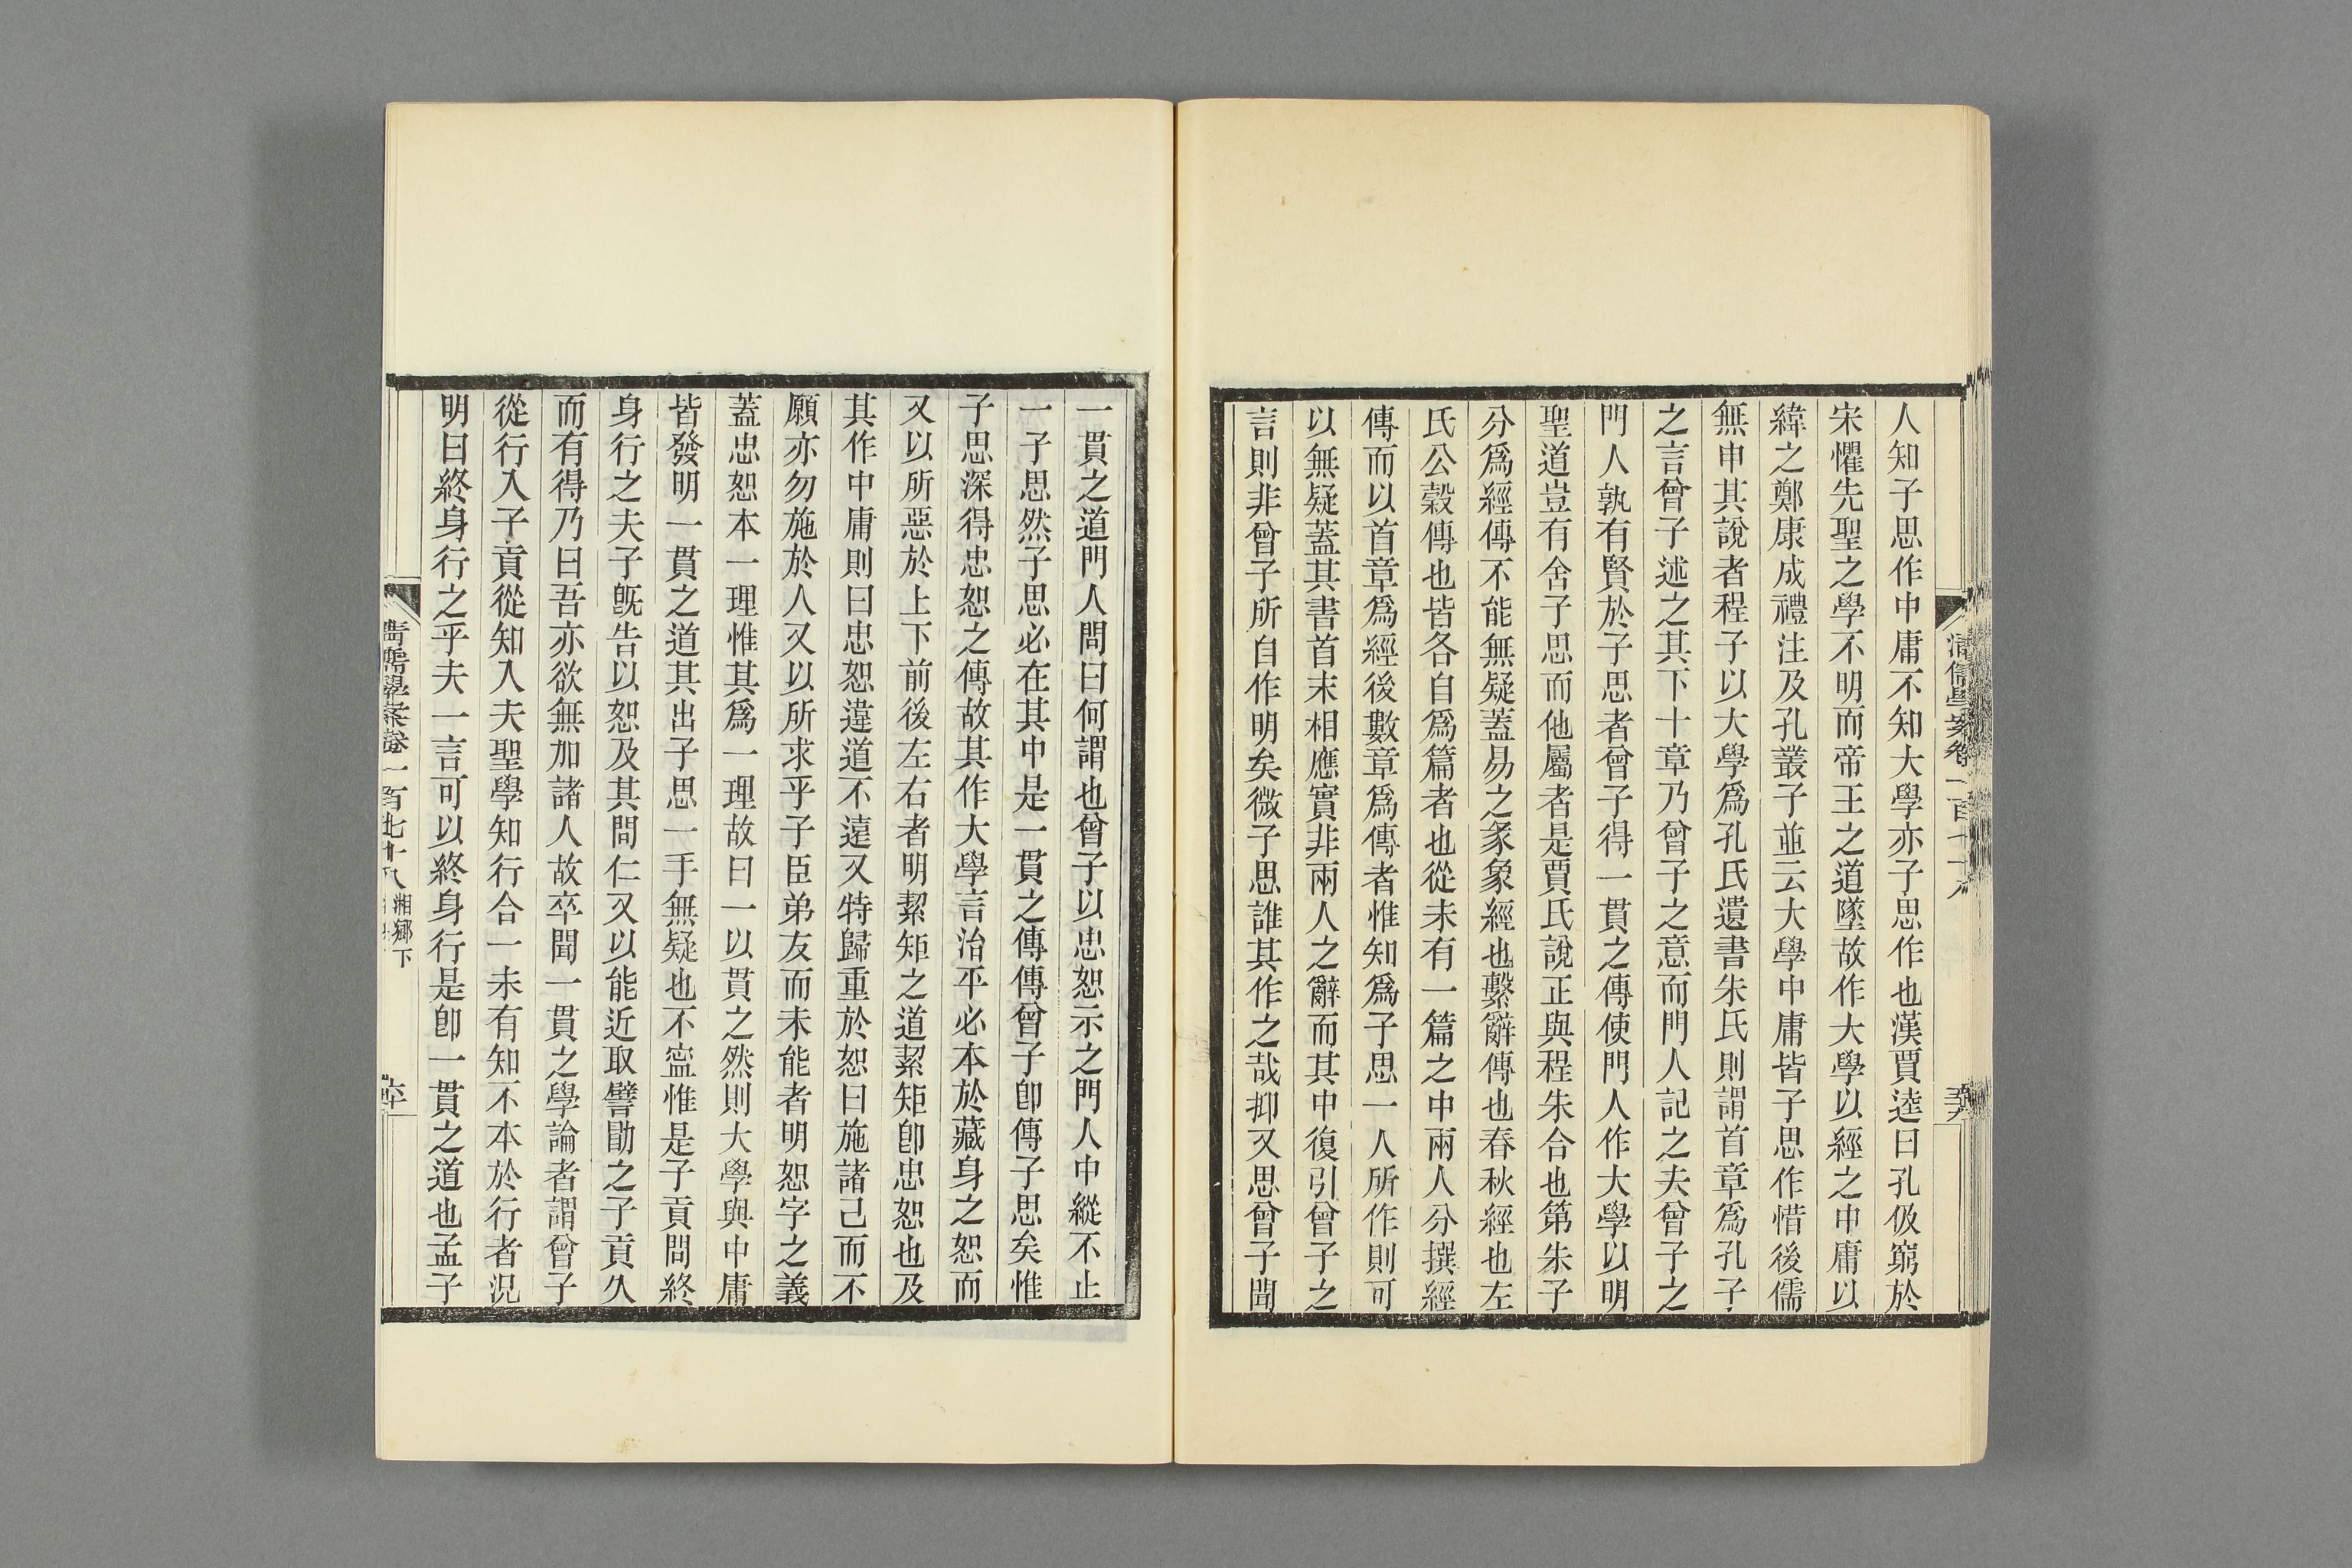 人知子思作中庸不知大學亦子思作也漢賈逵曰孔伋窮於
宋懼先聖之學不明而帝王之道墜故作大學以經之中庸以
緯之鄭康成禮注及孔叢子並云大學中庸皆子思作惜後儒
無申其說者程子以大學爲孔氏遺書朱氏則謂首章爲孔子
之言曾子述之其下十章乃曾子之意而門人記之夫曾子之
門人孰有賢於子思者曾子得一貫之傳使門人作大學以明
聖道豈有舍子思而他屬者是賈氏說正與程朱合也第朱子
分爲經傳不能無疑蓋易之彖象經也繫辭傳也春秋經也左
氏公穀傳也皆各自爲篇者也從未有一篇之中兩人分撰經
傳而以首章爲經後數章爲傳者惟知爲子思一人所作則可
以無疑蓋其書首末相應實非兩人之辭而其中復引曾子之
言則非曾子所自作明矣微子思誰其作之哉抑又思曾子聞
一貫之道門人問曰何謂也曾子以忠恕示之門人中縱不止
一子思然子思必在其中是一貫之傳傳曾子卽傳子思矣惟
子思深得忠恕之傳故其作大學言治平必本於藏身之恕而
又以所惡於上下前後左右者明絜矩之道絜矩卽忠恕也及
其作中庸則曰忠恕違道不遠又特歸重於恕曰施諸己而不
願亦勿施於人又以所求乎子臣弟友而未能者明恕字之義
蓋忠恕本一理惟其爲一理故曰一以貫之然則大學與中庸
皆發明一貫之道其出子思一手無疑也不寍惟是子貢問終
身行之夫子旣告以恕及其問仁又以能近取譬勖之子貢久
而有得乃曰吾亦欲無加諸人故卒聞一貫之學論者謂曾子
從行入子貢從知入夫聖學知行合一未有知不本於行者況
明曰終身行之乎夫一言可以終身行是卽一貫之道也孟子
清儒學案卷一百七十八 湘鄉下